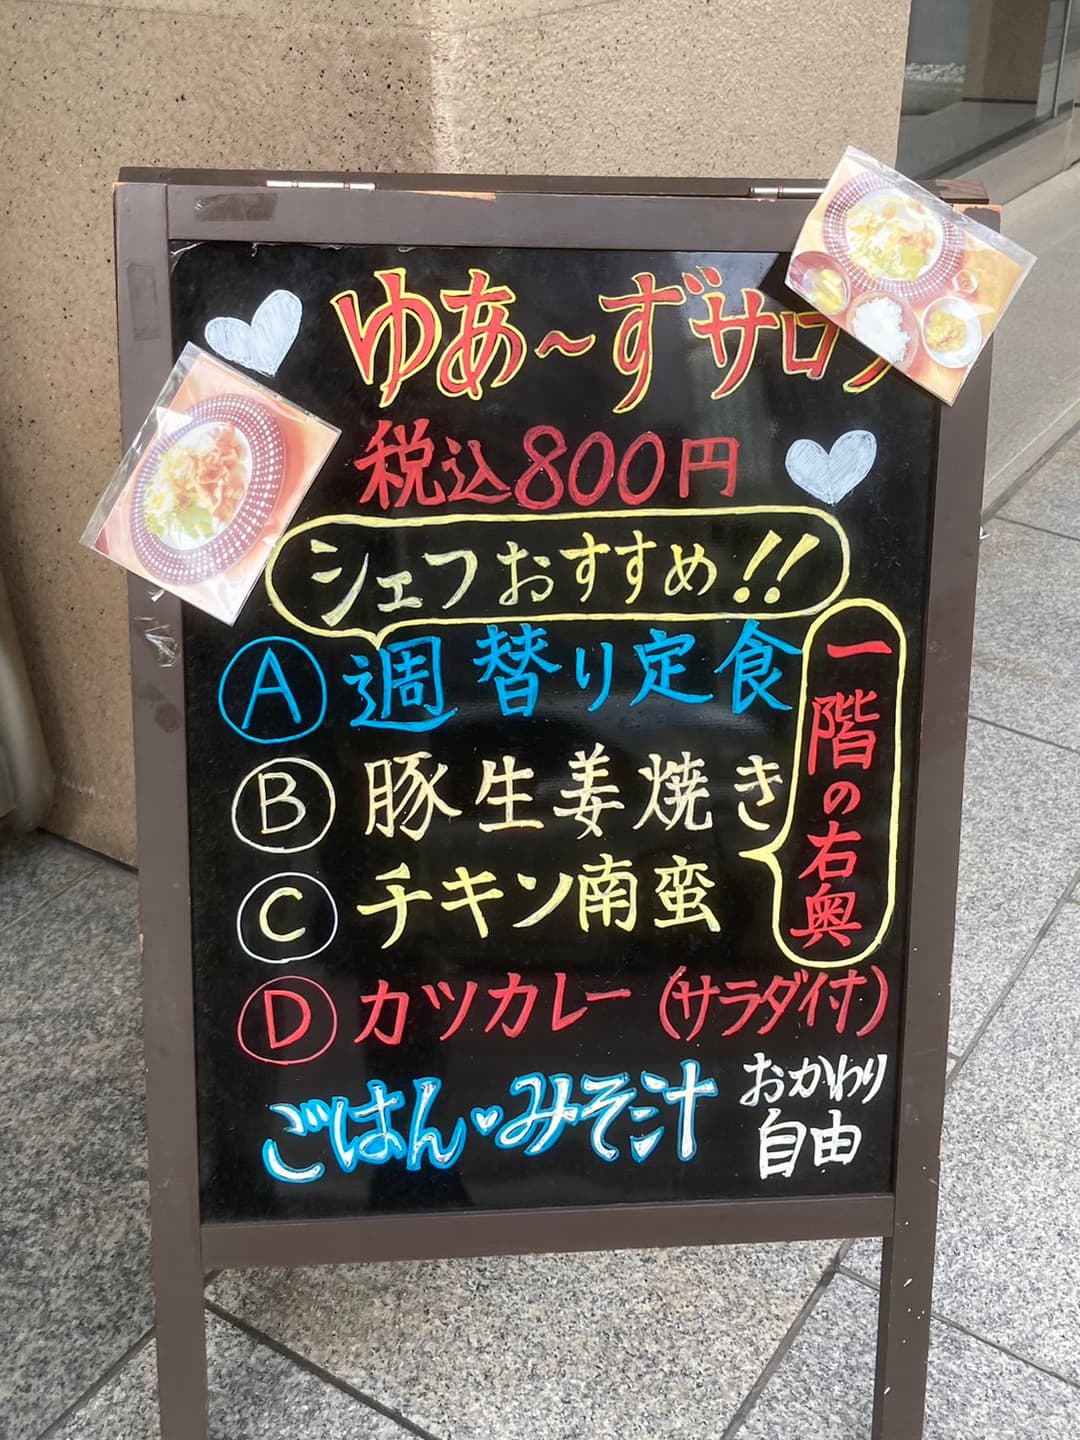 ゆあ〜ずサロン
税込800円
シェフおすすめ!!
Ⓐ週替り定食
Ⓑ豚生姜焼き
Ⓒチキン南蛮
Ⓓカツカレー(サラダ付)
一階の右奥
ごはん♥みそ汁
おかわり
自由